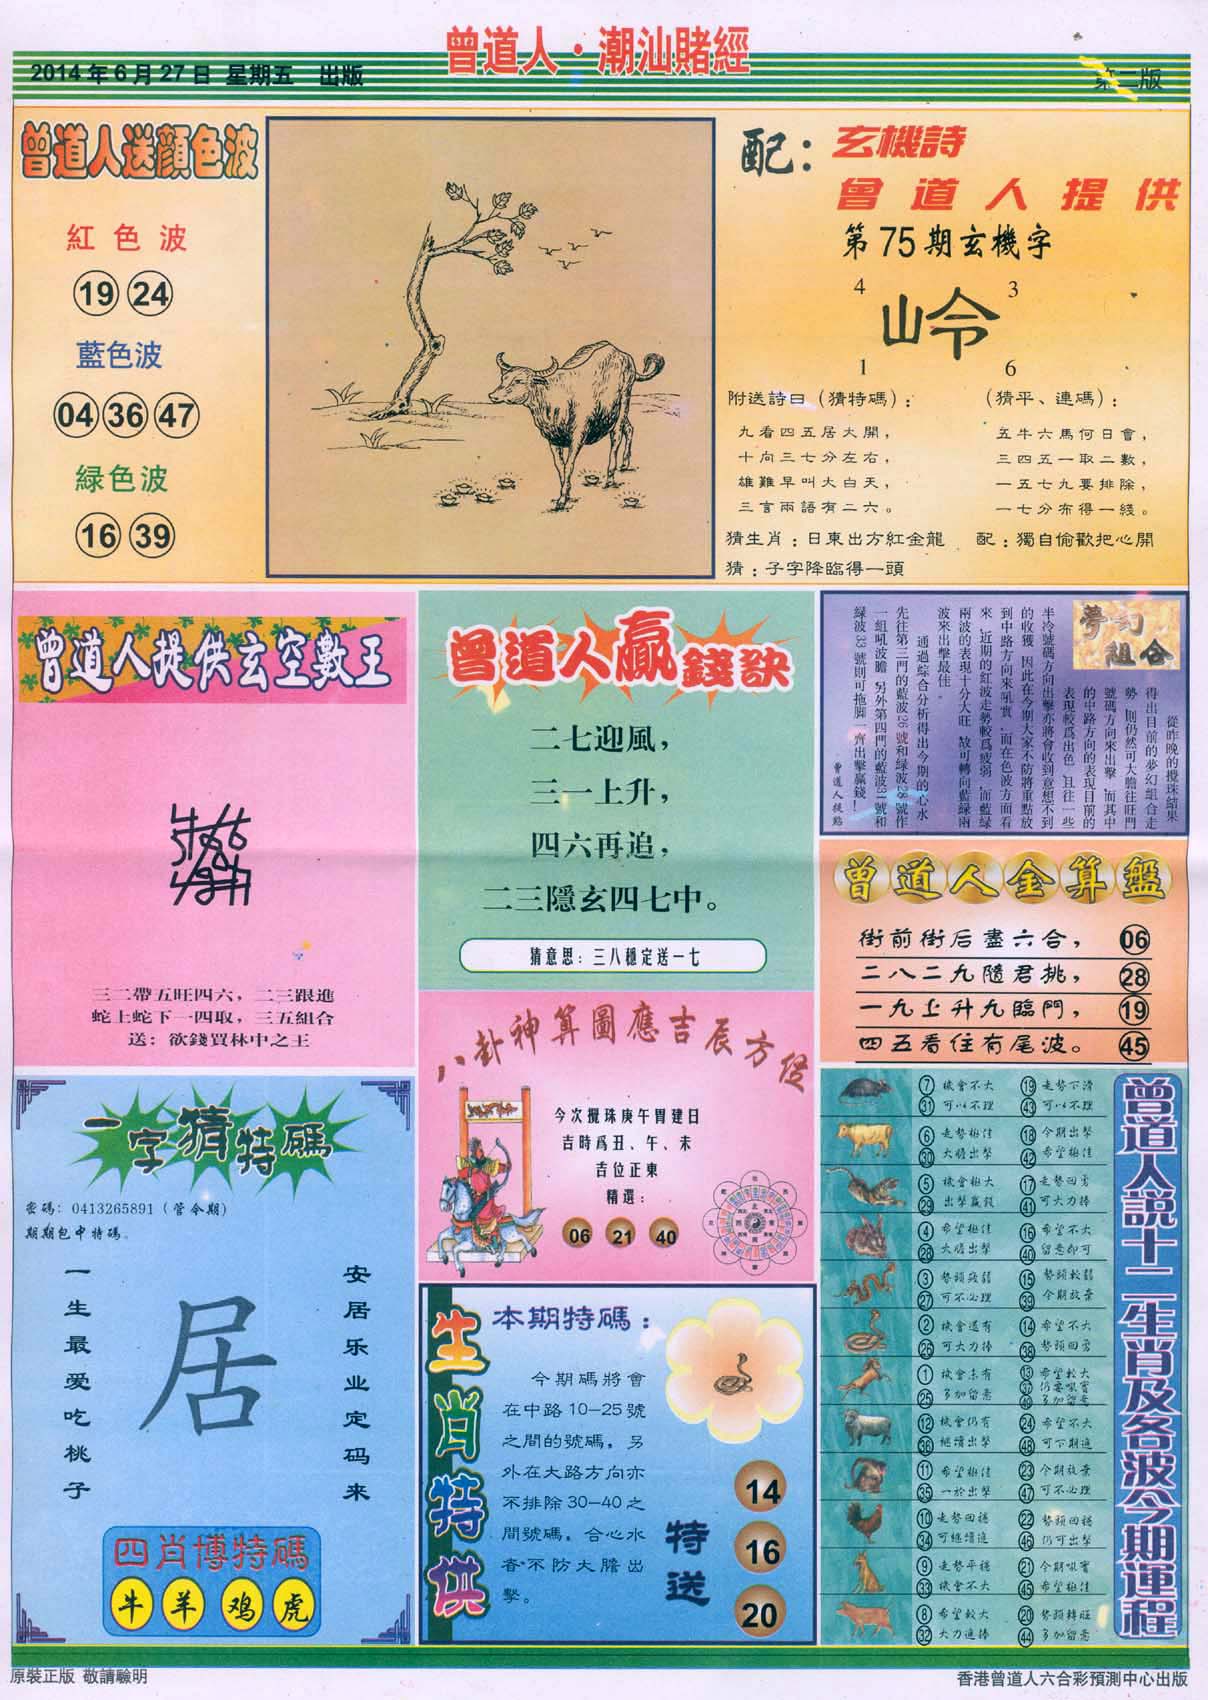 曾道人·潮汕賭經
2014年6月27日 星期五 出版
第二版
曾道人送顔色波
紅色波
19 24
藍色波
04 36 47
緑色波
16 39
配：玄機詩
曾道人提供
第75期玄機字
4 3
岭
1 6
附送詩曰（猜特碼）：
九看四五居大開，
十向三七分左右，
雄難早叫大白天，
三言兩語有二六。
（猜平、連碼）：
五牛六馬何日會，
三四五一取二數，
一五七九要排除，
一七分布得一綫。
猜生肖：日東出方紅金龍 配：獨自偷歡把心開
猜：子字降臨得一頭
曾道人提供玄空數王
三二帶五旺四六，二三跟進
蛇上蛇下一四取，三五組合
送：欲錢買林中之王
曾道人贏錢訣
二七迎風，
三一上升，
四六再追，
二三隱玄四七中。
猜意思：三八穩定送一七
夢幻組合
從昨晚的攪珠結果
得出目前的夢幻組合走
勢，則仍然可大膽往旺門
號碼方向來出擊，而其中
的中路方向的表現目前的
表現較爲出色，且往一些
半冷號碼方向出擊亦將會收到意想不到
的收獲，因此在今期大家不防將重點放
到中路方向來吼實，而在色波方面看
來，近期的紅波走勢較爲疲弱，而藍緑
兩波的表現十分大旺，故可轉向藍緑兩
波來出擊最佳。
通過綜合分析得出今期的心水
先往第三門的藍波26號和緑波28號作
一組吼波膽，另外第四門的藍波31號和
緑波33號則可拖脚一齊出擊贏錢！
曾道人提點
曾道人金算盤
街前街后盡六合， 06
二八二九隨君挑， 28
一九上升九臨門， 19
四五看住有尾波。 45
八卦神算圖應吉辰方位
今次攪珠庚午胃建日
吉時爲丑、午、未
吉位正東
精選：
06 21 40
一字猜特碼
密碼：0413265891（管令期）
期期包中特碼。
一生最爱吃桃子
居
安居乐业定码来
四肖博特碼
牛 羊 鸡 虎
生肖特供
本期特碼：
今期碼將會
在中路10-25號
之間的號碼，另
外在大路方向亦
不排除30-40之
間號碼，合心水
者不防大膽出
擊。
特送
14
16
20
曾道人説十二生肖及各波今期運程
7 機會不大 19 走勢下滑
31 可以不理 43 可以不理
6 走勢極佳 18 今期出擊
30 大膽出擊 42 希望極佳
5 機會極大 17 走勢回勇
29 出擊贏錢 41 可大力捧
4 希望極佳 16 希望不大
28 大膽出擊 40 留意即可
3 勢頭疲弱 15 勢頭較弱
27 可不必理 39 今期放棄
2 機會還有 14 希望不大
26 可大力捧 38 勢頭回勇
1 機會未有 13 希望較大
37 仍要吼實
25 多加留意 49 多加留意
12 機會仍有 24 希望不大
36 繼續出擊 48 可下期進
11 希望極佳 23 今期放棄
35 一於出擊 47 可不必理
10 走勢回穩 22 勢頭回穩
34 可繼續進 46 仍可出擊
9 走勢平穩 21 今期吼實
33 機會不大 45 希望極佳
8 希望較大 20 勢頭轉旺
32 大力進捧 44 多加留意
原裝正版 敬請驗明
香港曾道人六合彩預測中心出版